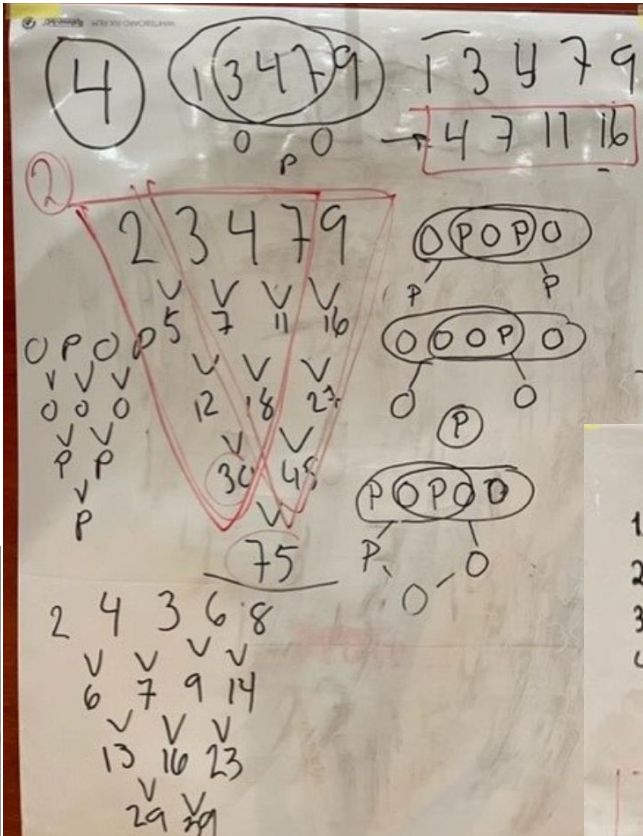 4
1 3 4 7 9
O P O
1 3 4 7 9
→ 4 7 11 16
2
2 3 4 7 9
5 7 11 16
12 18 27
30 45
75
O P O P
O O O
P P
P
O P O P O
P P
O O O P O
O O
P
P O P O O
P O
O
2 4 3 6 8
6 7 9 14
13 16 23
29 39
1
2
3